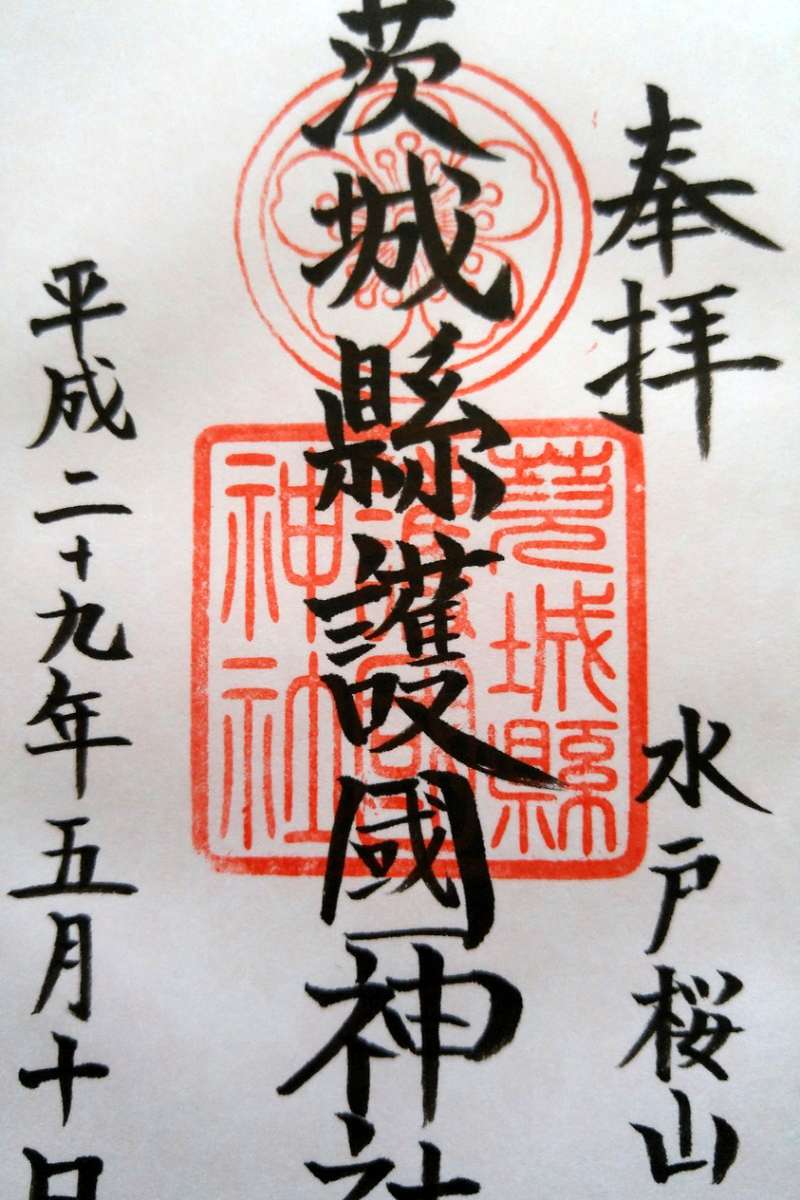 奉拝
水戸桜山
茨城縣護國神社
茨城縣
護國
神社
平成二十九年五月十日